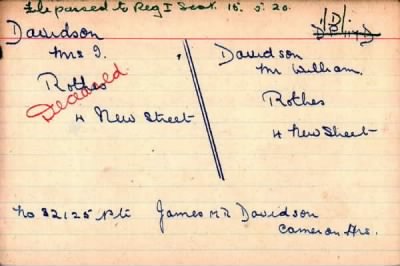 File passed to Reg I Scot. 15. 5. 20.
Davidson
Mrs I.
Rothes
Deceased.
4 New Street
Davidson
Mr William.
Rothes
4 New Street
No 32125 Pte James McD Davidson
Cameron Hrs.